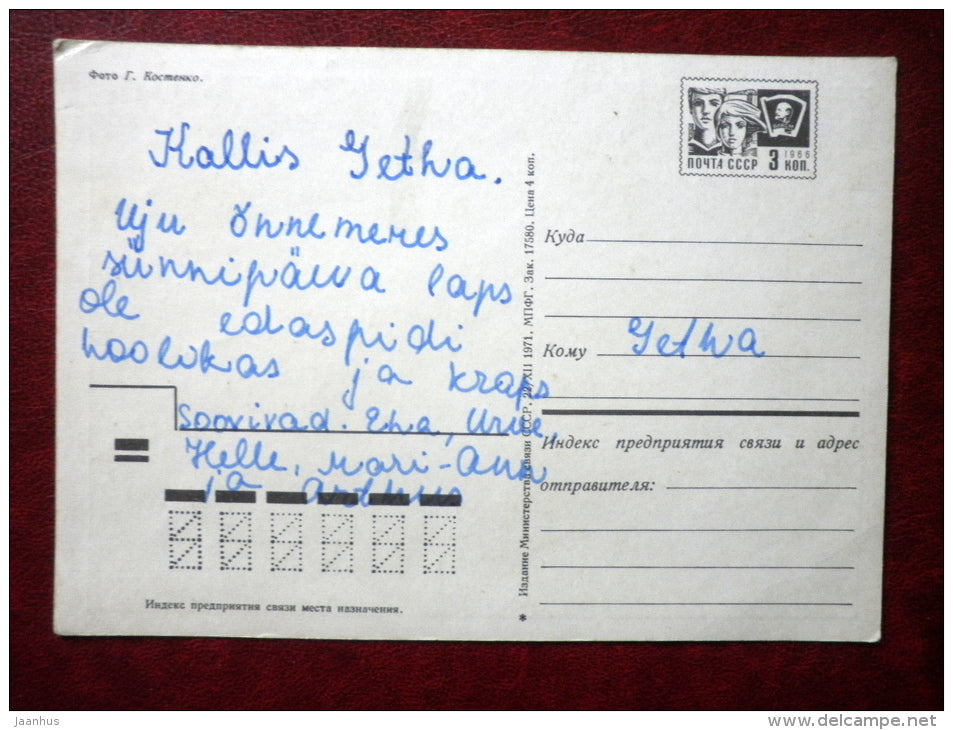 Фото Г. Костенко.
Kallis Getha.
Uju õnnemeres
sünnipäeva laps
ole edaspidi
hoolikas ja kraps
Soovivad. Eha, Urve,
Helle, Mari-Ann
ja
Индекс предприятия связи места назначения.
* Издание Министерства связи СССР. 22/XII 1971. МПФГ. Зак. 17580. Цена 4 коп.
1966
ПОЧТА СССР 3 КОП.
Куда
Кому Getha
Индекс предприятия связи и адрес
отправителя:
jaanhus
www.delcampe.net